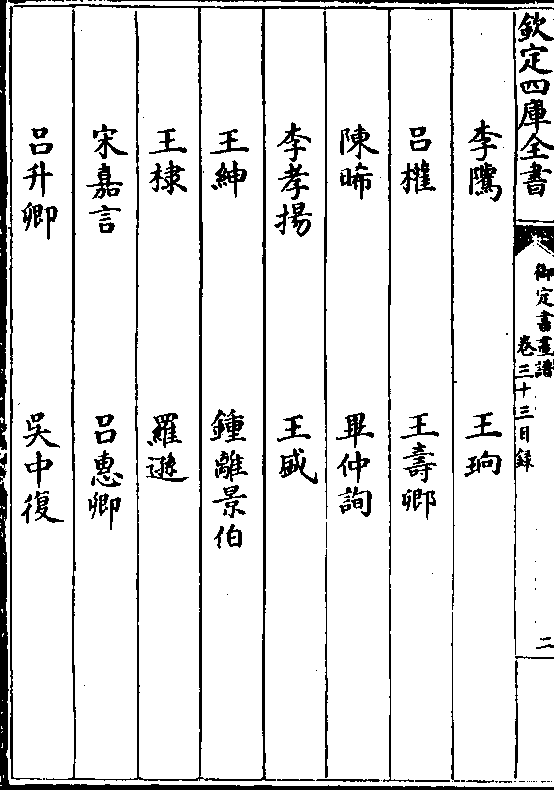 欽定四庫全書
御定書畫譜
卷三十三目録
二
李廌
王珦
呂㩁
王壽卿
陳晞
畢仲詢
李孝揚
王威
王紳
鍾離景伯
王棣
羅遜
宋嘉言
呂惠卿
呂升卿
吳中復